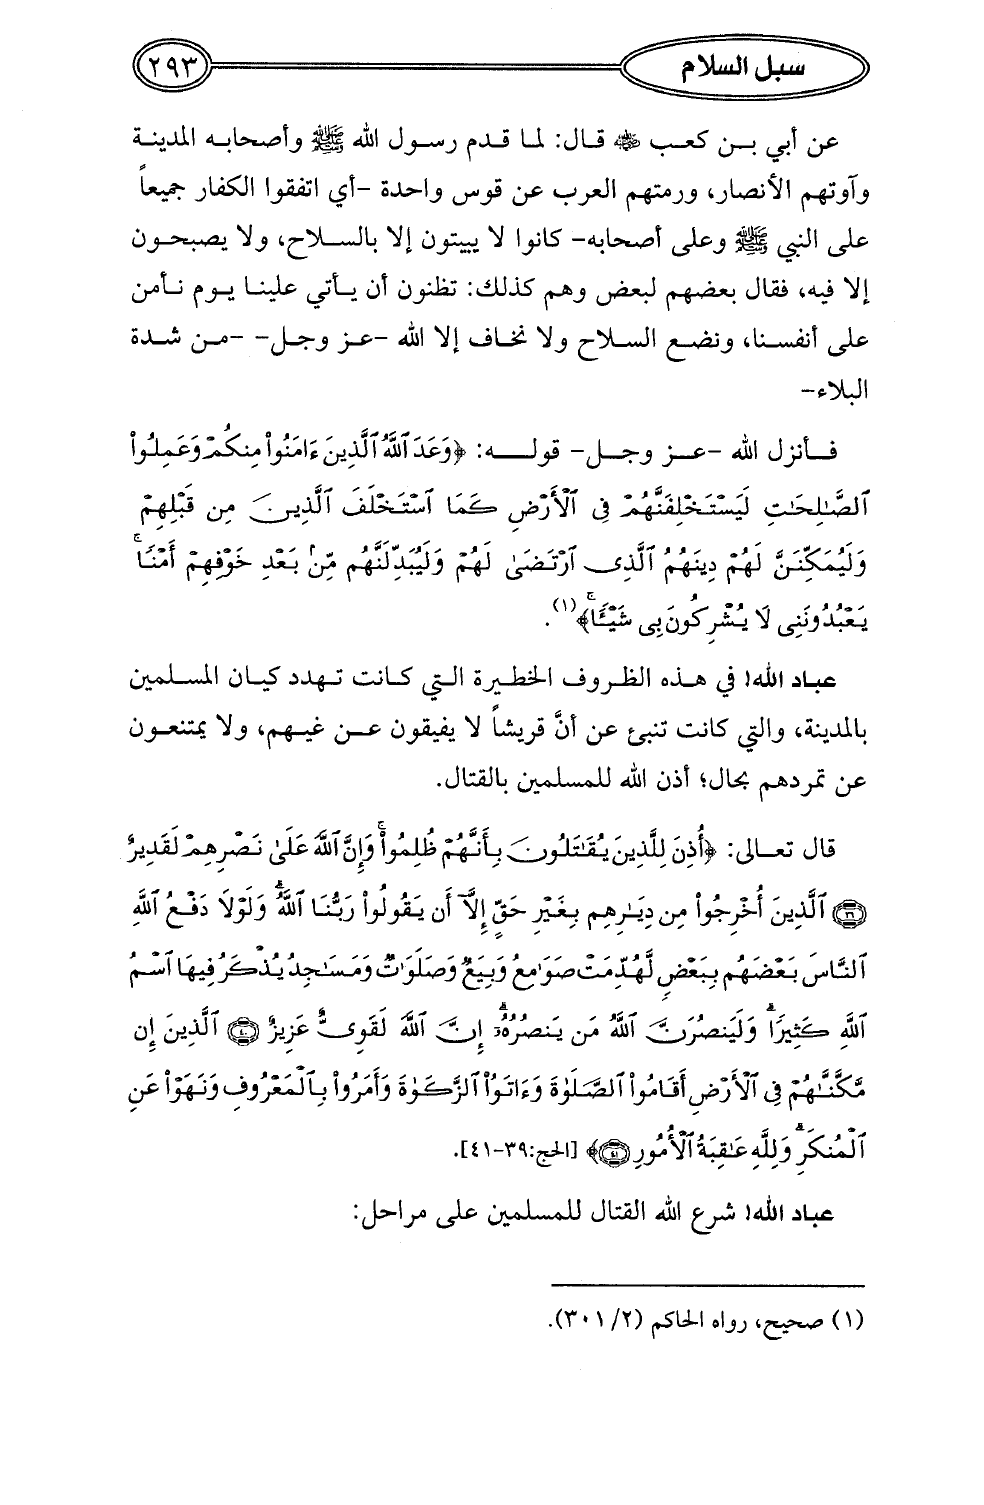 سبل السلام
٢٩٣
عن أبي بـن كعـب ﵁ قـال: لما قدم رسـول الله ﷺ وأصحابـه المدينـة
وآوتهم الأنصار، ورمتهم العرب عن قوس واحدة -أي اتفقوا الكفار جميعاً
على النبي ﷺ وعلى أصحابه- كانوا لا يبيتون إلا بالسـلاح، ولا يصبحـون
إلا فيه، فقال بعضهم لبعض وهم كذلك: تظنون أن يـأتي علينـا يـوم نـأمن
على أنفسـنا، ونضـع السـلاح ولا نخـاف إلا الله -عـز وجـل- -مـن شـدة
البلاء-
فـأنزل الله -عـز وجـل- قولـه: ﴿وَعَدَ ٱللَّهُ ٱلَّذِينَ ءَامَنُوا۟ مِنكُمْ وَعَمِلُوا۟
ٱلصَّـٰلِحَـٰتِ لَيَسْتَخْلِفَنَّهُمْ فِى ٱلْأَرْضِ كَمَا ٱسْتَخْلَفَ ٱلَّذِينَ مِن قَبْلِهِمْ
وَلَيُمَكِّنَنَّ لَهُمْ دِينَهُمُ ٱلَّذِى ٱرْتَضَىٰ لَهُمْ وَلَيُبَدِّلَنَّهُم مِّنۢ بَعْدِ خَوْفِهِمْ أَمْنًا ۚ
يَعْبُدُونَنِى لَا يُشْرِكُونَ بِى شَيْـًٔا ۚ﴾(١).
عبـاد الله! في هـذه الظـروف الخطيرة الـتي كـانت تهـدد كيـان المسـلمين
بالمدينة، والتي كانت تنبئ عن أنَّ قريشاً لا يفيقون عـن غيـهم، ولا يمتنعـون
عن تمردهم بحال؛ أذن الله للمسلمين بالقتال.
قال تعـالى: ﴿أُذِنَ لِلَّذِينَ يُقَـٰتَلُونَ بِأَنَّهُمْ ظُلِمُوا۟ ۚ وَإِنَّ ٱللَّهَ عَلَىٰ نَصْرِهِمْ لَقَدِيرٌ
٣٩ ٱلَّذِينَ أُخْرِجُوا۟ مِن دِيَـٰرِهِم بِغَيْرِ حَقٍّ إِلَّآ أَن يَقُولُوا۟ رَبُّنَا ٱللَّهُ ۗ وَلَوْلَا دَفْعُ ٱللَّهِ
ٱلنَّاسَ بَعْضَهُم بِبَعْضٍ لَّهُدِّمَتْ صَوَٰمِعُ وَبِيَعٌ وَصَلَوَٰتٌ وَمَسَـٰجِدُ يُذْكَرُ فِيهَا ٱسْمُ
ٱللَّهِ كَثِيرًا ۗ وَلَيَنصُرَنَّ ٱللَّهُ مَن يَنصُرُهُۥٓ ۗ إِنَّ ٱللَّهَ لَقَوِىٌّ عَزِيزٌ ٤٠ ٱلَّذِينَ إِن
مَّكَّنَّـٰهُمْ فِى ٱلْأَرْضِ أَقَامُوا۟ ٱلصَّلَوٰةَ وَءَاتَوُا۟ ٱلزَّكَوٰةَ وَأَمَرُوا۟ بِٱلْمَعْرُوفِ وَنَهَوْا۟ عَنِ
ٱلْمُنكَرِ ۗ وَلِلَّهِ عَـٰقِبَةُ ٱلْأُمُورِ ٤١﴾ [الحج:٣٩-٤١].
عباد الله! شرع الله القتال للمسلمين على مراحل:
(١) صحيح، رواه الحاكم (٣٠١/٢).